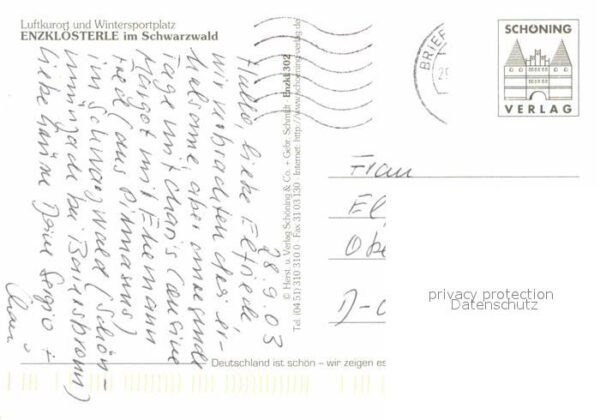 Luftkurort und Wintersportplatz
ENZKLÖSTERLE im Schwarzwald
28.9.03
Hallo, liebe Elfriede,
wir verbrachten drei er-
holsame aber anregende
Tage mit Charis Cousine
Margot mit Ehemann
Fred (aus Pirmasens)
im Schwarzwald (Schön-
münzach bei Baiersbronn)
Liebe Grüße Deine Sergio +
© Herst. u. Verlag Schöning & Co. + Gebr. Schmidt Enzkl 302
Tel. (04 51) 310 310 0 · Fax 31 03 130 · Internet: http://www.schoening-verlag.de
Deutschland ist schön – wir zeigen es
BRIEF
SCHÖNING
VERLAG
Frau
El
Obe
D-
privacy protection
Datenschutz